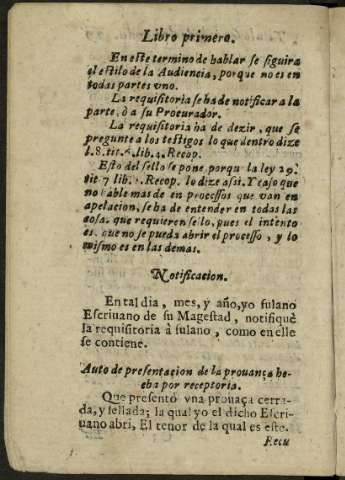 Libro primero.
En este termino de hablar se siguira
el estilo de la Audiencia, porque no es en
todas partes vno.
La requisitoria se ha de notificar a la
parte, ò a su Procurador.
La requisitoria ha de dezir, que se
pregunte a los testigos lo que dentro dize
l. 8. tit. lib. 4. Recop.
Esto del sello se pone porqu la ley 29.
tit 7 lib. Recop. lo dize assi. Y caso que
no hable mas de en processos que van en
apelacion, se ha de entender en todas las
cosas que requieren sello, pues el intento
es que no se pueda abrir el processo, y lo
mismo es en las demas.
Notificacion.
En tal dia, mes, y año, yo fulano
Escriuano de su Magestad, notifiquè
la requisitoria à fulano, como en elle
se contiene.
Auto de presentacion de la prouança he-
cha por receptoria.
Que presentò vna prouãça cerra-
da, y sellada; la qual yo el dicho Escri-
uano abri, El tenor de la qual es este.
Recu